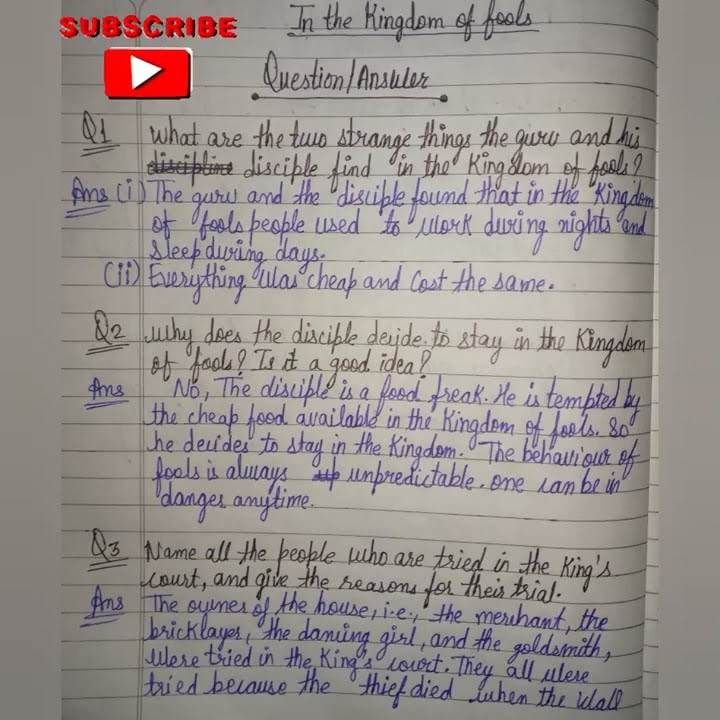 SUBSCRIBE
In the Kingdom of fools
Question/Answer
Q1 What are the two strange things the guru and his
discipline disciple find in the Kingdom of fools?
Ans (i) The guru and the disciple found that in the Kingdom
of fools people used to work during nights and
sleep during days.
(ii) Everything was cheap and cost the same.
Q2 Why does the disciple decide to stay in the Kingdom
of fools? Is it a good idea?
Ans No, The disciple is a food freak. He is tempted by
the cheap food available in the Kingdom of fools. So
he decides to stay in the Kingdom. The behaviour of
fools is always unpredictable. one can be in
danger anytime.
Q3 Name all the people who are tried in the King's
court, and give the reasons for their trial.
Ans The oyines of the house, i.e., the merchant, the
bricklayer, the dancing girl, and the goldsmith,
were tried in the King's court. They all were
tried because the thief died when the wall